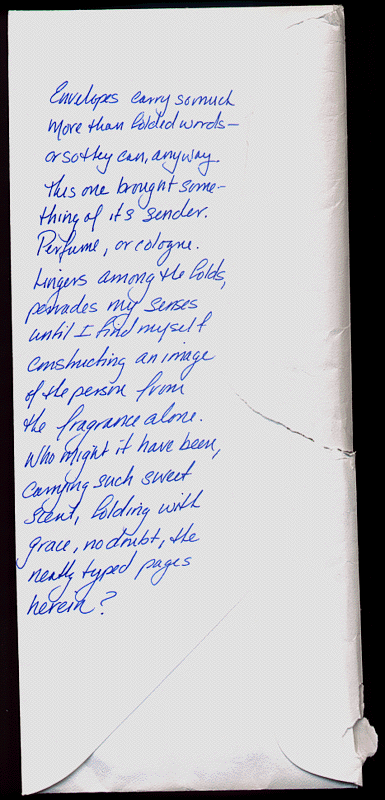 Envelopes carry so much
more than folded words—
or so they can, anyway.
This one brought some-
thing of its sender.
Perfume, or cologne.
Lingers among the folds,
pervades my senses
until I find myself
constructing an image
of the person from
the fragrance alone.
Who might it have been,
carrying such sweet
scent, folding with
grace, no doubt, the
neatly typed pages
herein?